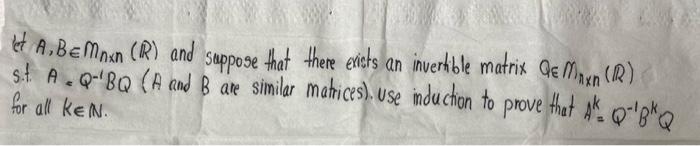 let A,B∈Mn×n (R) and suppose that there exists an invertible matrix Q∈Mn×n (R)
s.t. A = Q⁻¹BQ (A and B are similar matrices). use induction to prove that Aᵏ = Q⁻¹BᵏQ
for all k∈N.